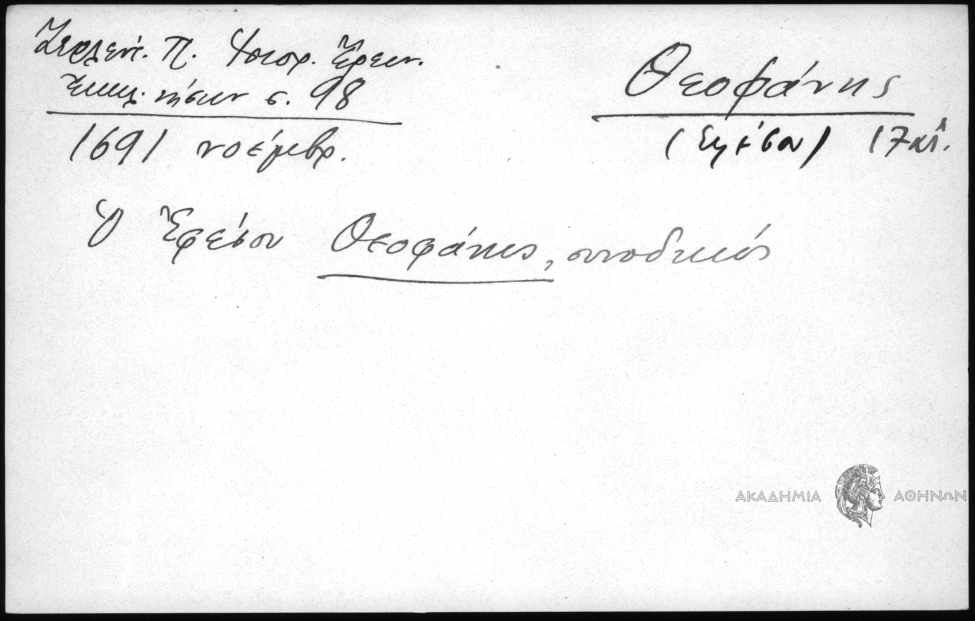 Ζερλέντ. Π. Ἱστορ. Ἔρευν.
Ἐκκλ. νήσων σ. 98
Θεοφάνης
1691 νοέμβρ.
(Ἐφέσου) 17 αἰ.
Ὁ Ἐφέσου Θεοφάνης, συνοδικός
ΑΚΑΔΗΜΙΑ ΑΘΗΝΩΝ